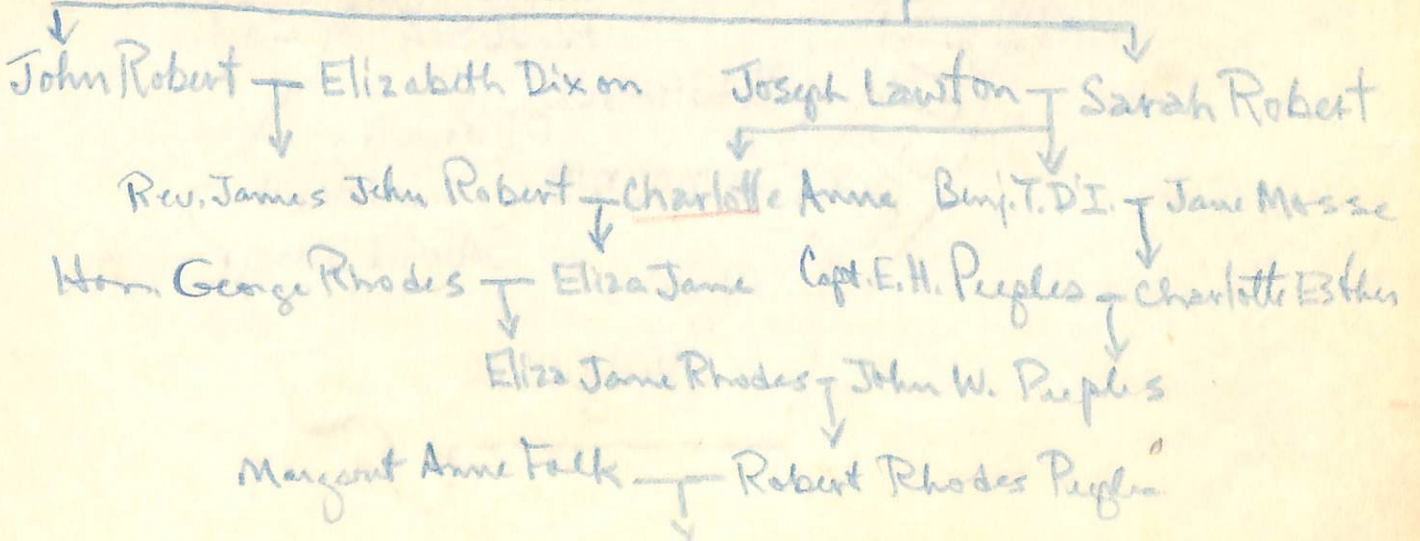 John Robert Elizabeth Dixon Joseph Lawton Sarah Robert
Rev. James John Robert Charlotte Anne Benj. T. D'I. Jane Mosse
Hon. George Rhodes Eliza Jane Capt. E. H. Peeples Charlotte Esther
Eliza Jane Rhodes John W. Peeples
Margaret Anne Folk Robert Rhodes Peeples